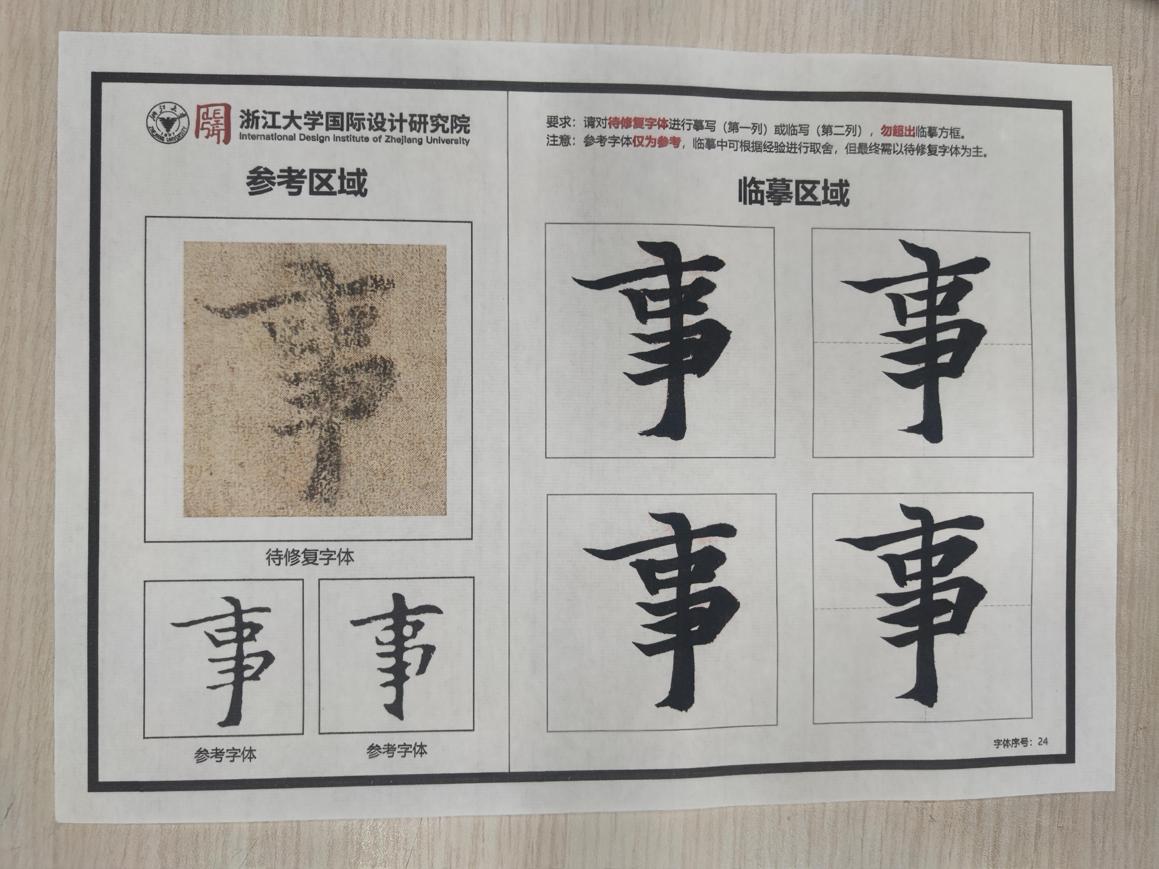 浙江大学国际设计研究院
International Design Institute of Zhejiang University
参考区域
事
待修复字体
事 事
参考字体 参考字体
要求：请对待修复字体进行摹写（第一列）或临写（第二列），勿超出临摹方框。
注意：参考字体仅为参考，临摹中可根据经验进行取舍，但最终需以待修复字体为主。
临摹区域
事 事
事 事
字体序号：24